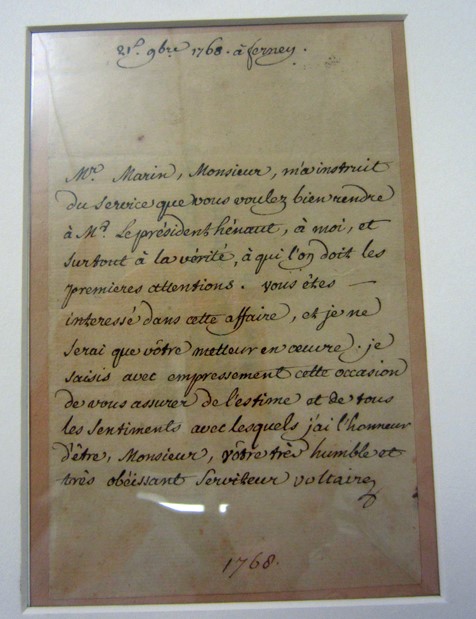 21e. 9bre 1768. à ferney.
Mr. Marin, Monsieur, m'a instruit
du service que vous voulez bien rendre
à Mr. Le président hénaut, à moi, et
surtout à la vérité, à qui l'on doit les
premieres attentions. vous êtes —
interessé dans cette affaire, et je ne
serai que vôtre metteur en œuvre. je
saisis avec empressement cette occasion
de vous assurer de l'estime et de tous
les sentiments avec lesquels j'ai l'honneur
d'être, Monsieur, vôtre très humble et
très obéissant serviteur voltaire
1768.